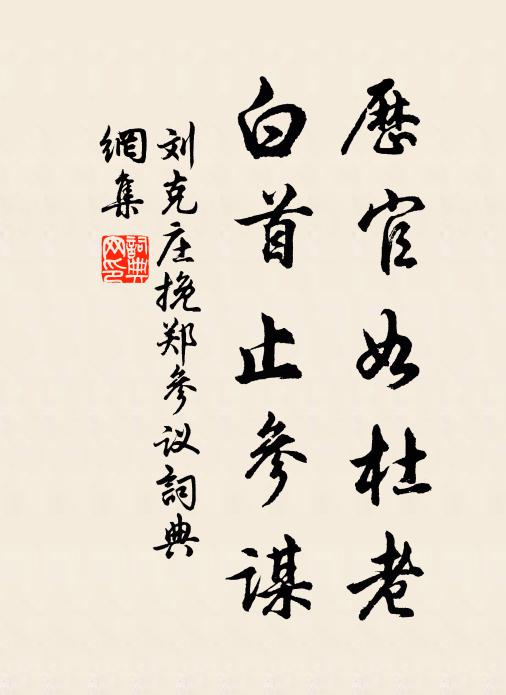 歷官如杜老
白首止參謀
刘克庄挽郑參议詞典
網集
詞典
网印